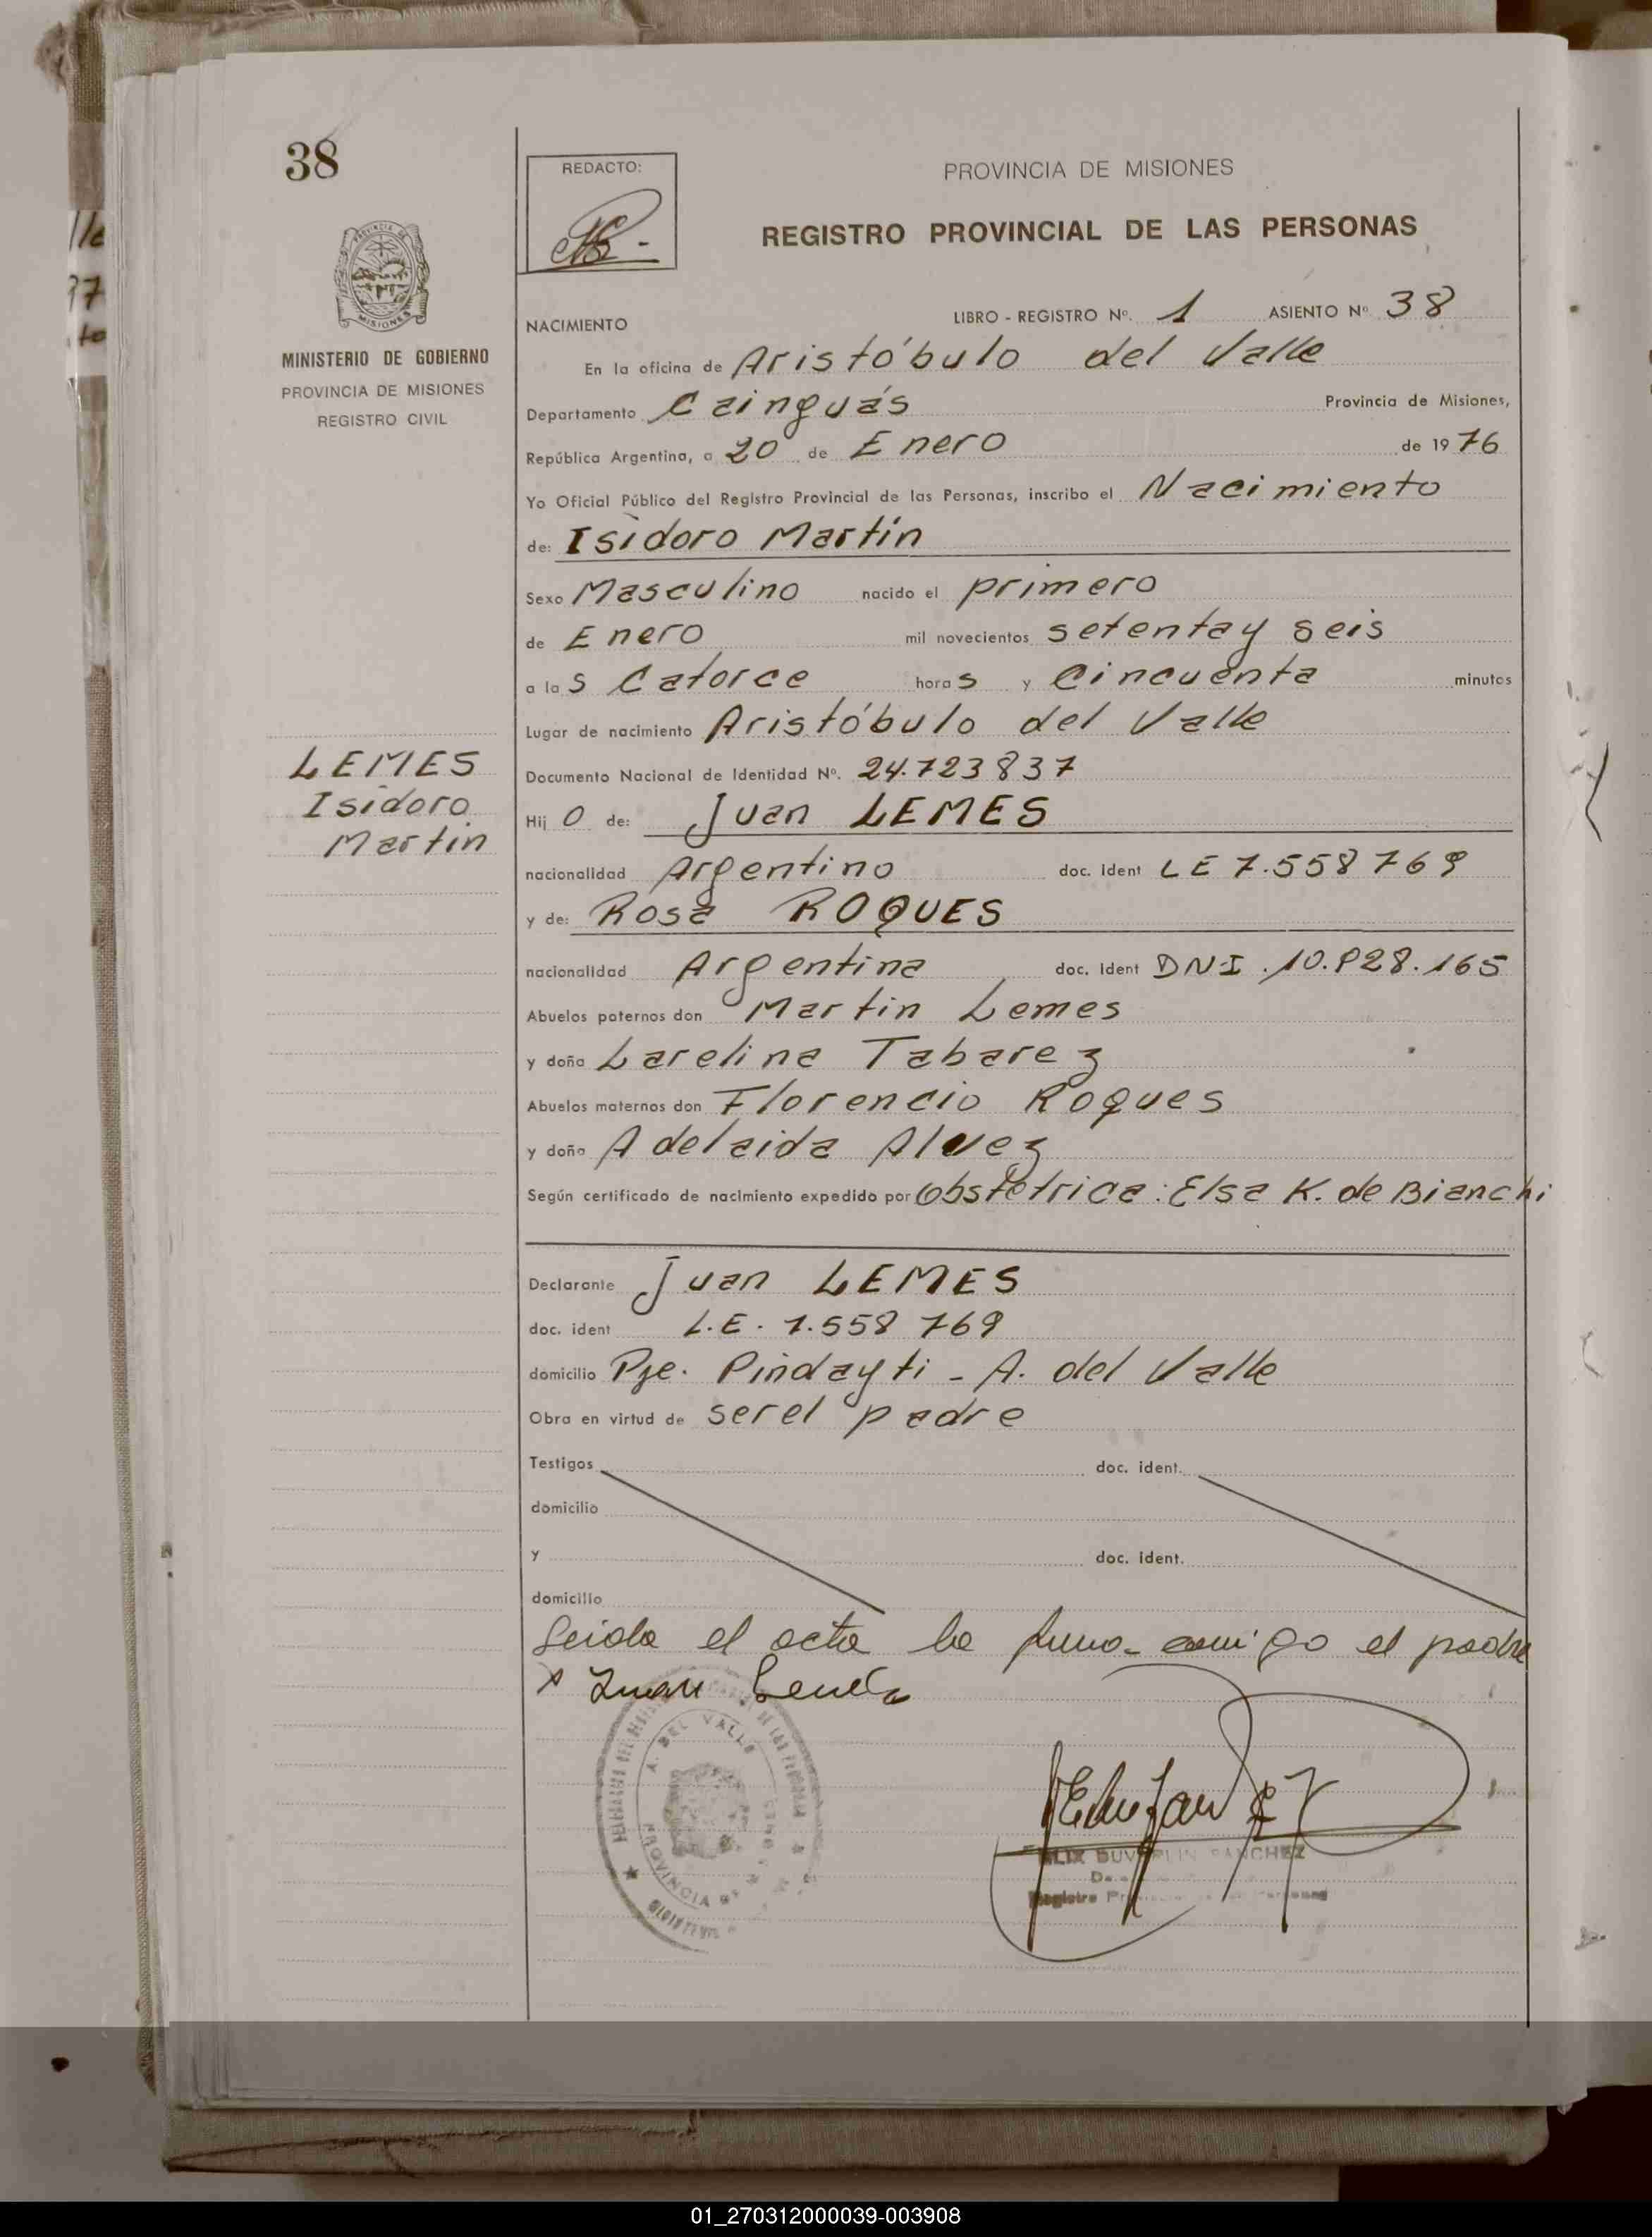 38
REDACTO:
PROVINCIA DE MISIONES
REGISTRO PROVINCIAL DE LAS PERSONAS
MISIONES
MINISTERIO DE GOBIERNO
PROVINCIA DE MISIONES
REGISTRO CIVIL
NACIMIENTO LIBRO - REGISTRO Nº. 1 ASIENTO Nº 38
En la oficina de Aristóbulo del Valle
Departamento Cainguás Provincia de Misiones,
República Argentina, a 20 de Enero de 1976
Yo Oficial Público del Registro Provincial de las Personas, inscribo el Nacimiento
de: Isidoro Martin
Sexo Masculino nacido el primero
de Enero mil novecientos setenta y seis
a las Catorce horas y Cincuenta minutos
Lugar de nacimiento Aristóbulo del Valle
LEMES
Isidoro
Martin
Documento Nacional de Identidad Nº. 24.723837
Hijo de: Juan LEMES
nacionalidad Argentino doc. ident LE 7.558769
y de: Rosa ROQUES
nacionalidad Argentina doc. ident DNI.10.828.165
Abuelos paternos don Martin Lemes
y doña Larelina Tabarez
Abuelos maternos don Florencio Roques
y doña Adelaida Alvez
Según certificado de nacimiento expedido por Obstetrica: Elsa K. de Bianchi
Declarante Juan LEMES
doc. ident L.E. 7.558769
domicilio Pje. Pindayti - A. del Valle
Obra en virtud de ser el padre
Testigos doc. ident.
domicilio
y doc. ident.
domicilio
Leida el acta la firma conmigo el padre
x Juan
A. DEL VALLE
PROVINCIA DE
SANCHEZ
01_270312000039-003908